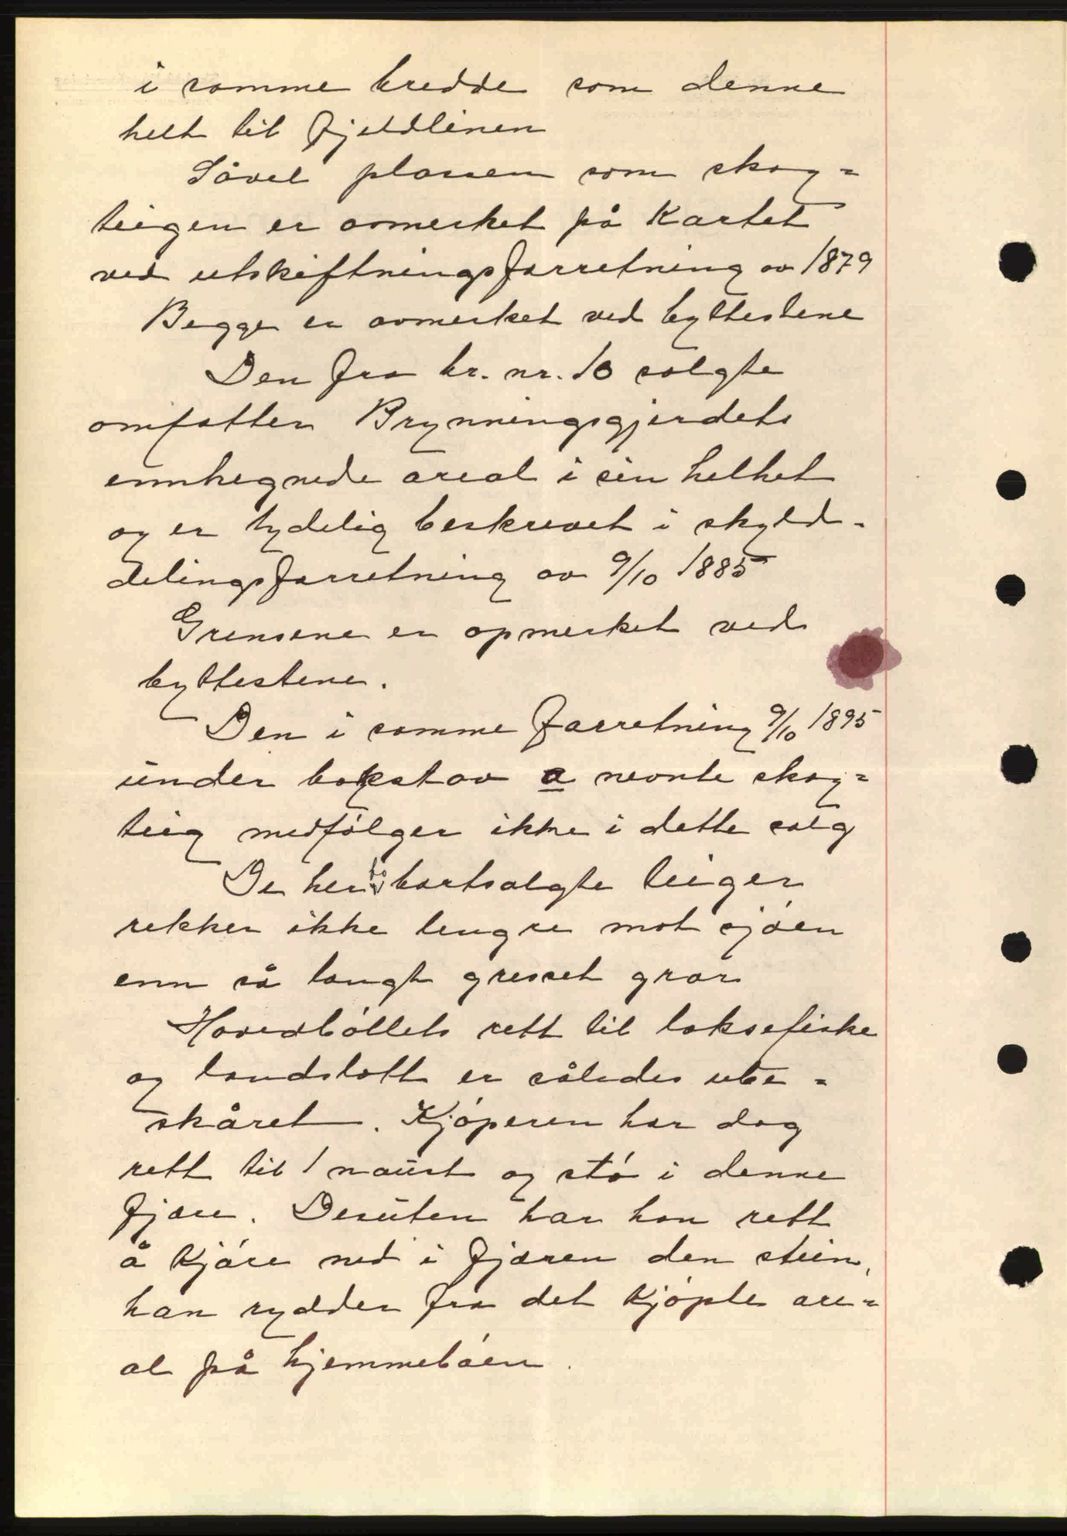 i samme bredde som denne
helt til fjeldlinen
Såvel plassen som skog=
teigen er avmerket på Kartet
ved utskiftningsforretning av 1879
Begge er avmerket ved byttestene
Den fra br. nr. 10 solgte
omfatter Brynningsgjerdets
ennhegnede areal i sin helhet
og er tydelig beskrevet i skyld-
delingsforretning av 9/10 1885
Grensene er opmerket ved
byttestene.
Den i samme forretning 9/10 1895
under bokstav a nevnte skog=
teig medfølger ikke i dette salg
De her bortsolgte teiger
rekker ikke lengre mot sjøen
enn så langt gresset gror
Hovedbøllets rett til laksefiske
og landslott er således ube=
skåret. Kjøperen har dog
rett til 1 naust og stø i denne
fjære. Desuten har han rett
å kjøre ned i fjæren den stein,
han rydder fra det kjøpte are=
al på hjemmebøen.